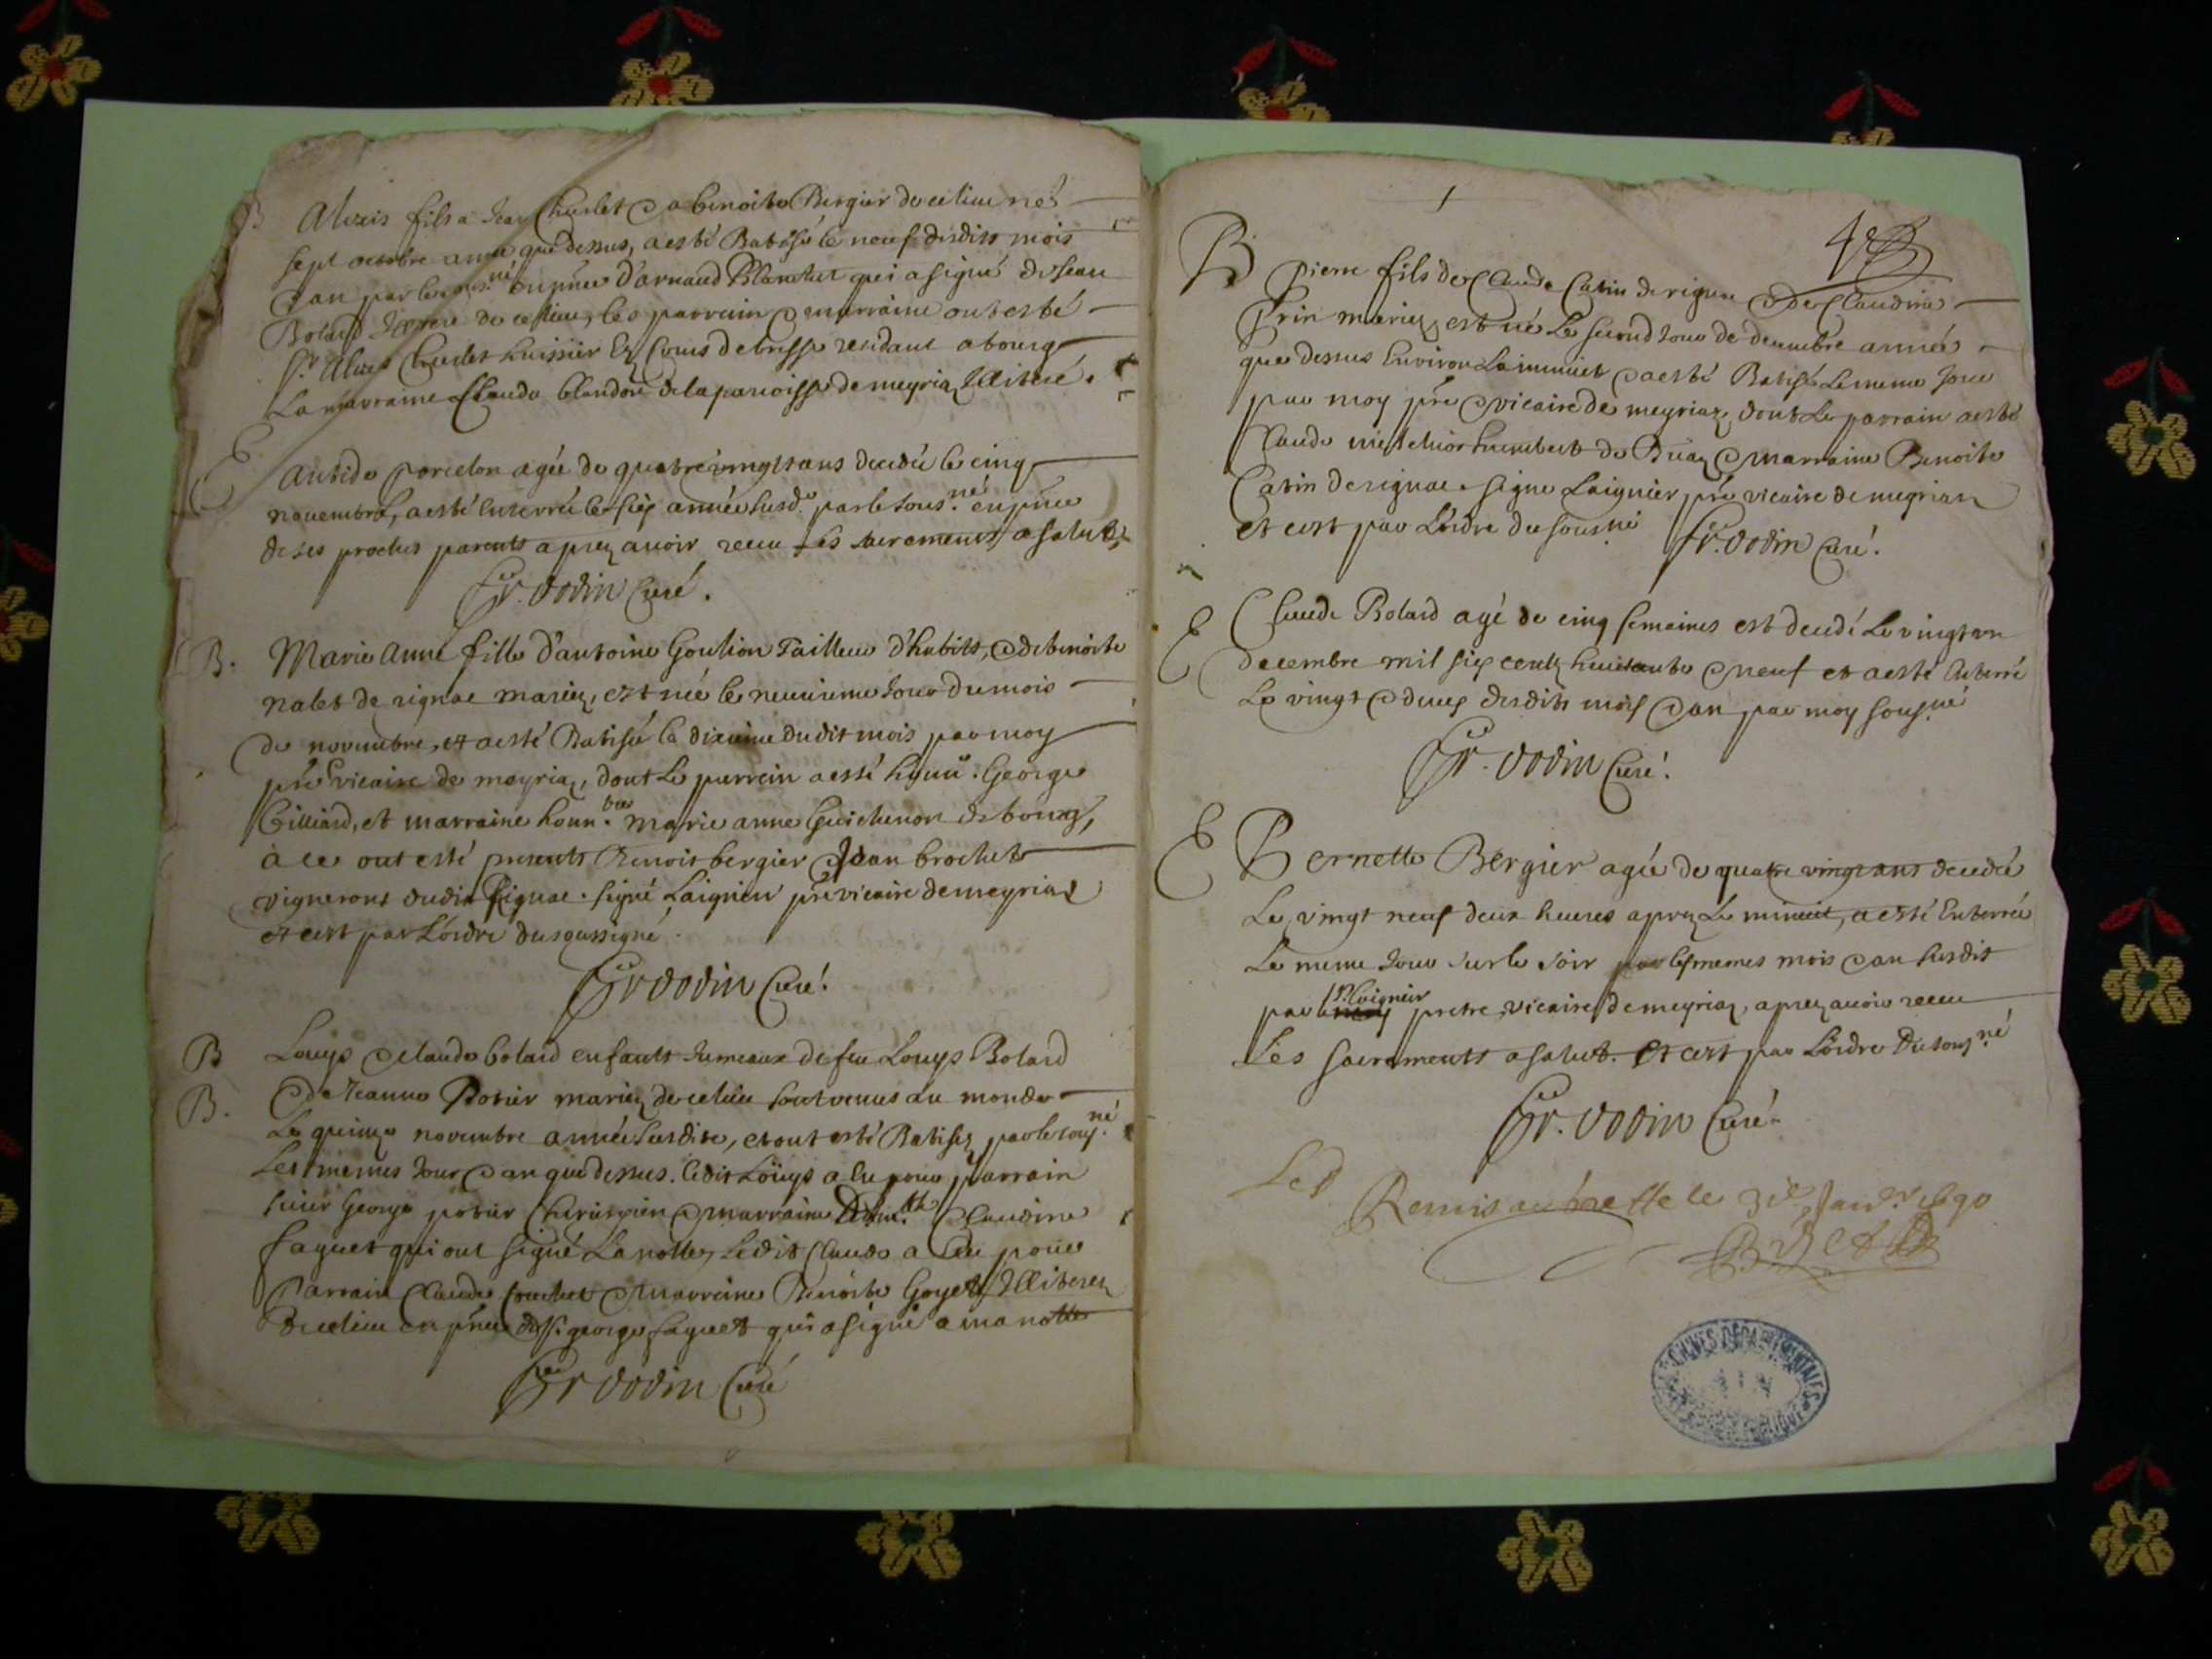 B Alexis fils a Jean Chuelet & a benoite Bergier de ce lieu né
sept octobre année que dessus, a esté Batisé le neuf desdits mois
& an par le sous.né en pnce d'arnaud Blanchet qui a signé de Jean
Bolard de ce lieu, les parrain & marraine ont esté
Sr. Alexis Chuelet huissier Ez Cours de bresse residant a bourg
La marraine Claude blandon de la paroisse de meyriaz Illiteré.
E Antide Porcelon agée de quatre vingts ans decedée le cinq
novembre, a esté enterrée le six année susd.e par le sous.né en pnce
de ses proches parents aprez avoir receu les sacrements a salut
fr. Dodin Curé.
B. Marie Anne fille d'antoine Goulion Tailleur d'habits, & de benoite
nalet de rignac mariez, est née le neuvieme Jour du mois
de novembre, et a esté Batisée le dixieme dudit mois par moy
pre vicaire de meyriaz, dont le parrein a esté honn. George
Gilliard, et marraine honn.ble marie anne Guichenon de bourg,
à ce ont esté presents Benoit bergier & Jean brochet
vignerons dudit Rignac. signé Laignier pre vicaire de meyriaz
et c'est par L'ordre du soussigné.
fr Dodin Curé.
B Louys & claude bolard enfants Jumeaux de feu Louys Bolard
B. & de Jeanne Potier mariez de ce lieu sont venus au monde
Le quinze novembre année susdite, et ont esté Batisez par le sous.né
Les memes Jour & an que dessus. ledit Loüys a eu pour parrain
sieur George potier Chirurgien & marraine Dam.lle Claudine
faguet qui ont signé La notte, Ledit Claude a eu pour
Parrain Claude Couchet & marreine Benoite Goyet Illiterez
de ce lieu en pnce du Sr. george faguet qui a signé a ma notte
fr Dodin Curé
B Pierre fils de Claude Catin de rignac & de Claudine
Prin mariez, est né Le second Jour de decembre année
que dessus Environ La minuit & a esté Batisé Le meme Jour
par moy pre & vicaire de meyriaz, dont Le parrain a esté
Claude melchior humbert de Buaz & marraine Benoite
Catin de rignac. signe Laignier pre vicaire de meyriaz
et c'est par L'ordre du sous.né fr. Dodin Curé.
E Claude Bolard agé de cinq semaines est decedé Le vingt un
decembre mil six cents huictante & neuf et a esté Enterré
Le vingt & deux desdits mois & an par moy sous.né
fr. Dodin Curé.
E Bernette Bergier agée de quatre vingt ans decedée
Le vingt neuf deux heures aprez La minuit, a esté Enterrée
Le meme Jour sur le soir par les memes mois & an susdit
par Sr. Laignier pretre vicaire de meyriaz, aprez avoir receu
Les sacrements a salut. et c'est par L'ordre du sous.né
fr. Dodin Curé.
Led
Remis au greffe le 31e Janvr. 1690
ARCHIVES DÉPARTEMENTALES
AIN